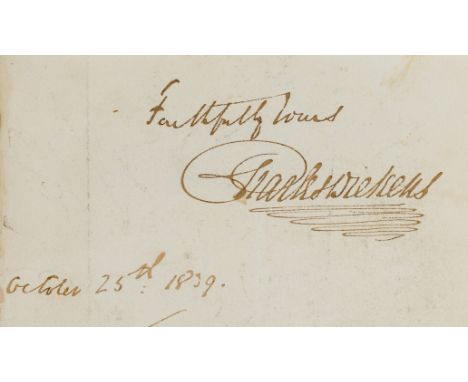 Faithfully Yours
Charles Dickens
October 25th 1839.